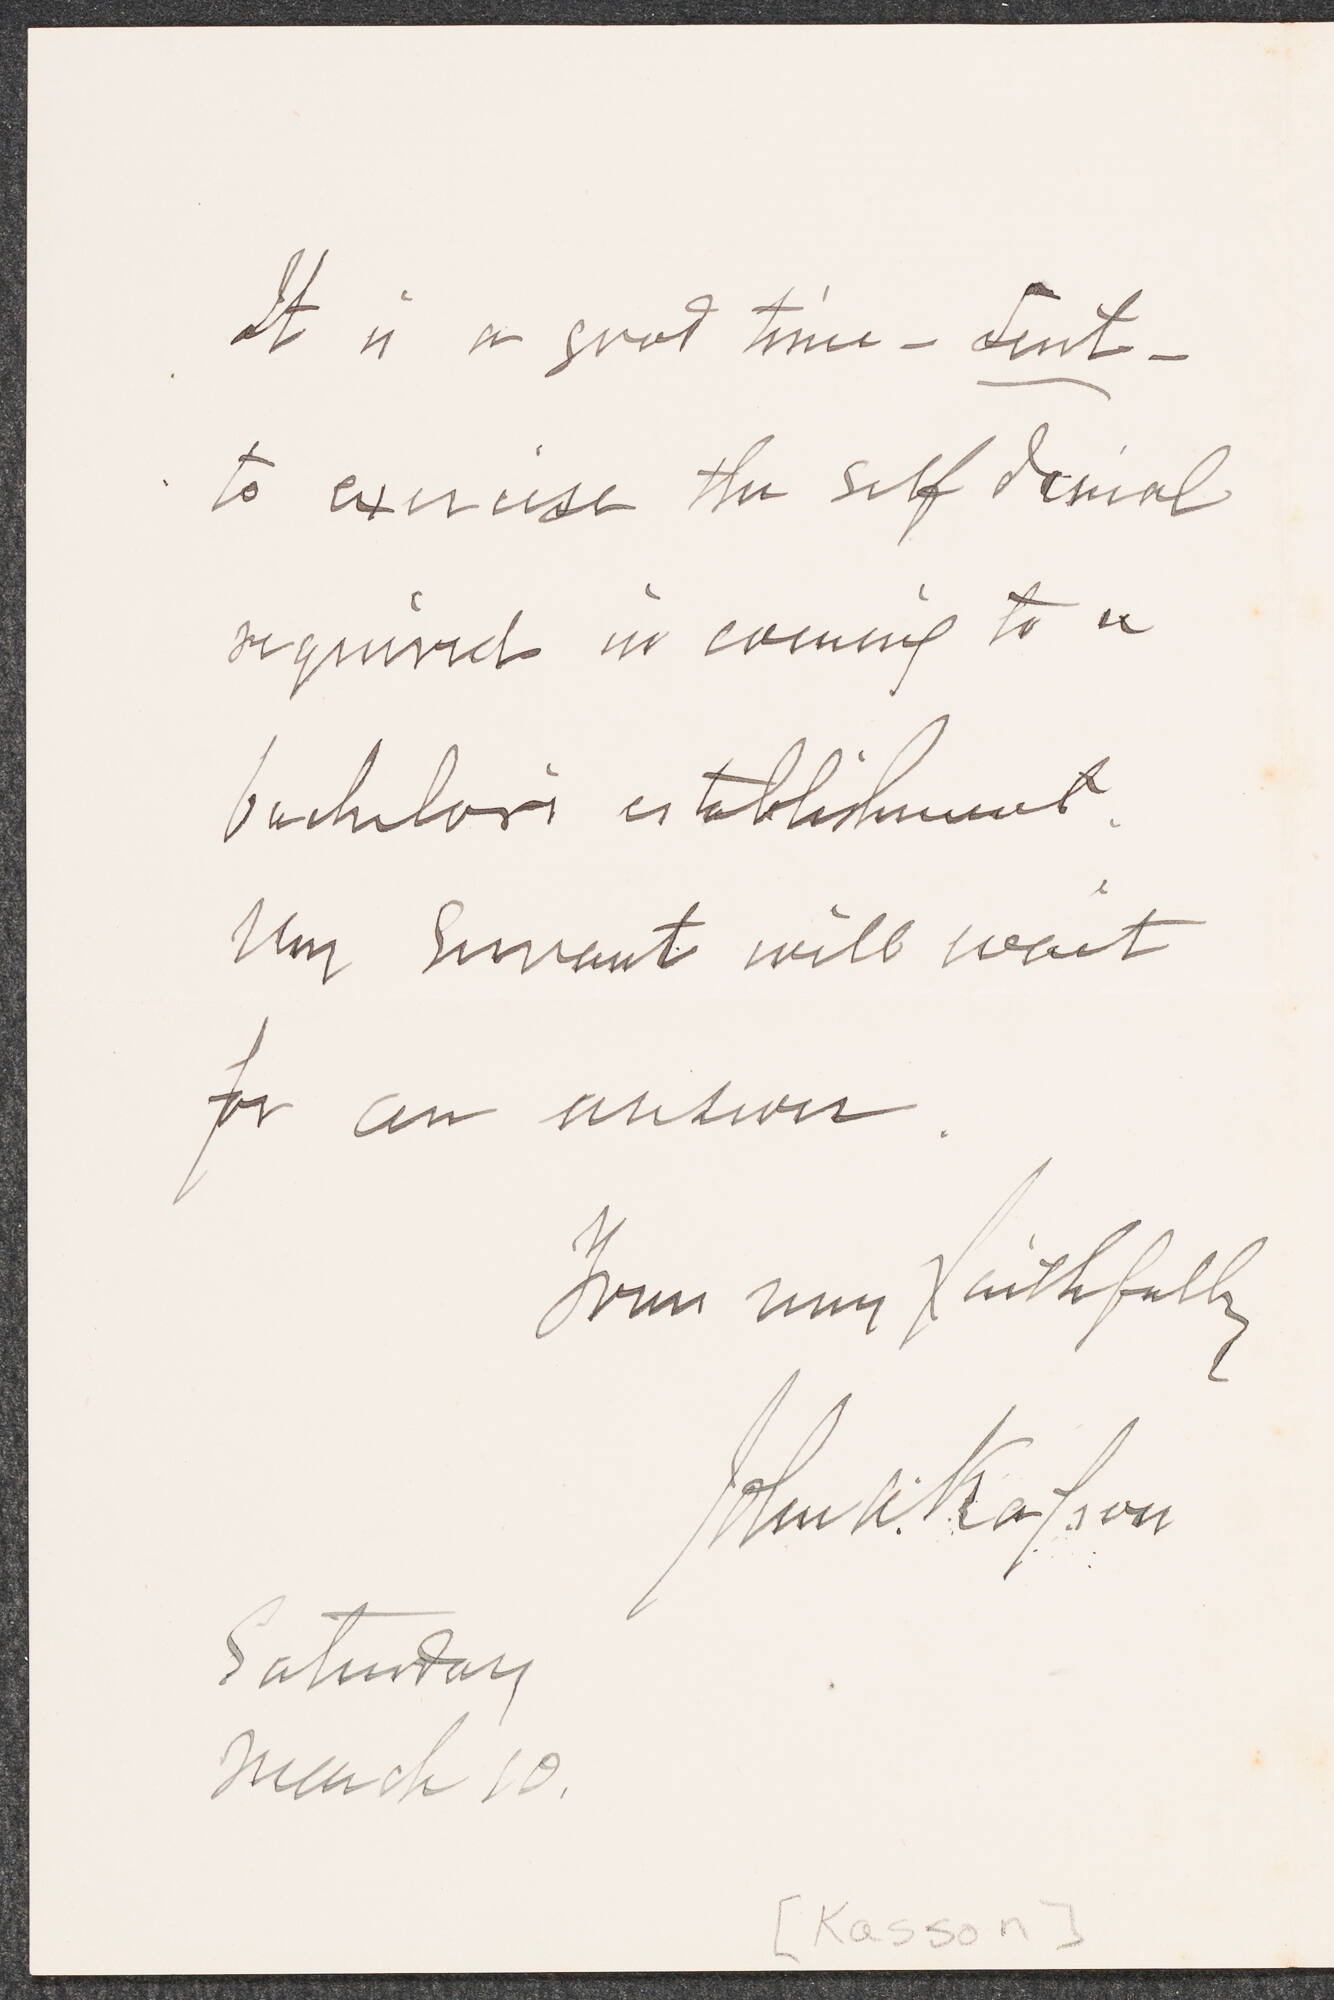 It is a good time – Lent –
to exercise the self denial
required in coming to a
bachelor's establishment.
My Servant will wait
for an answer.
Yours very faithfully
John A. Kasson
Saturday
March 10.
[Kasson]